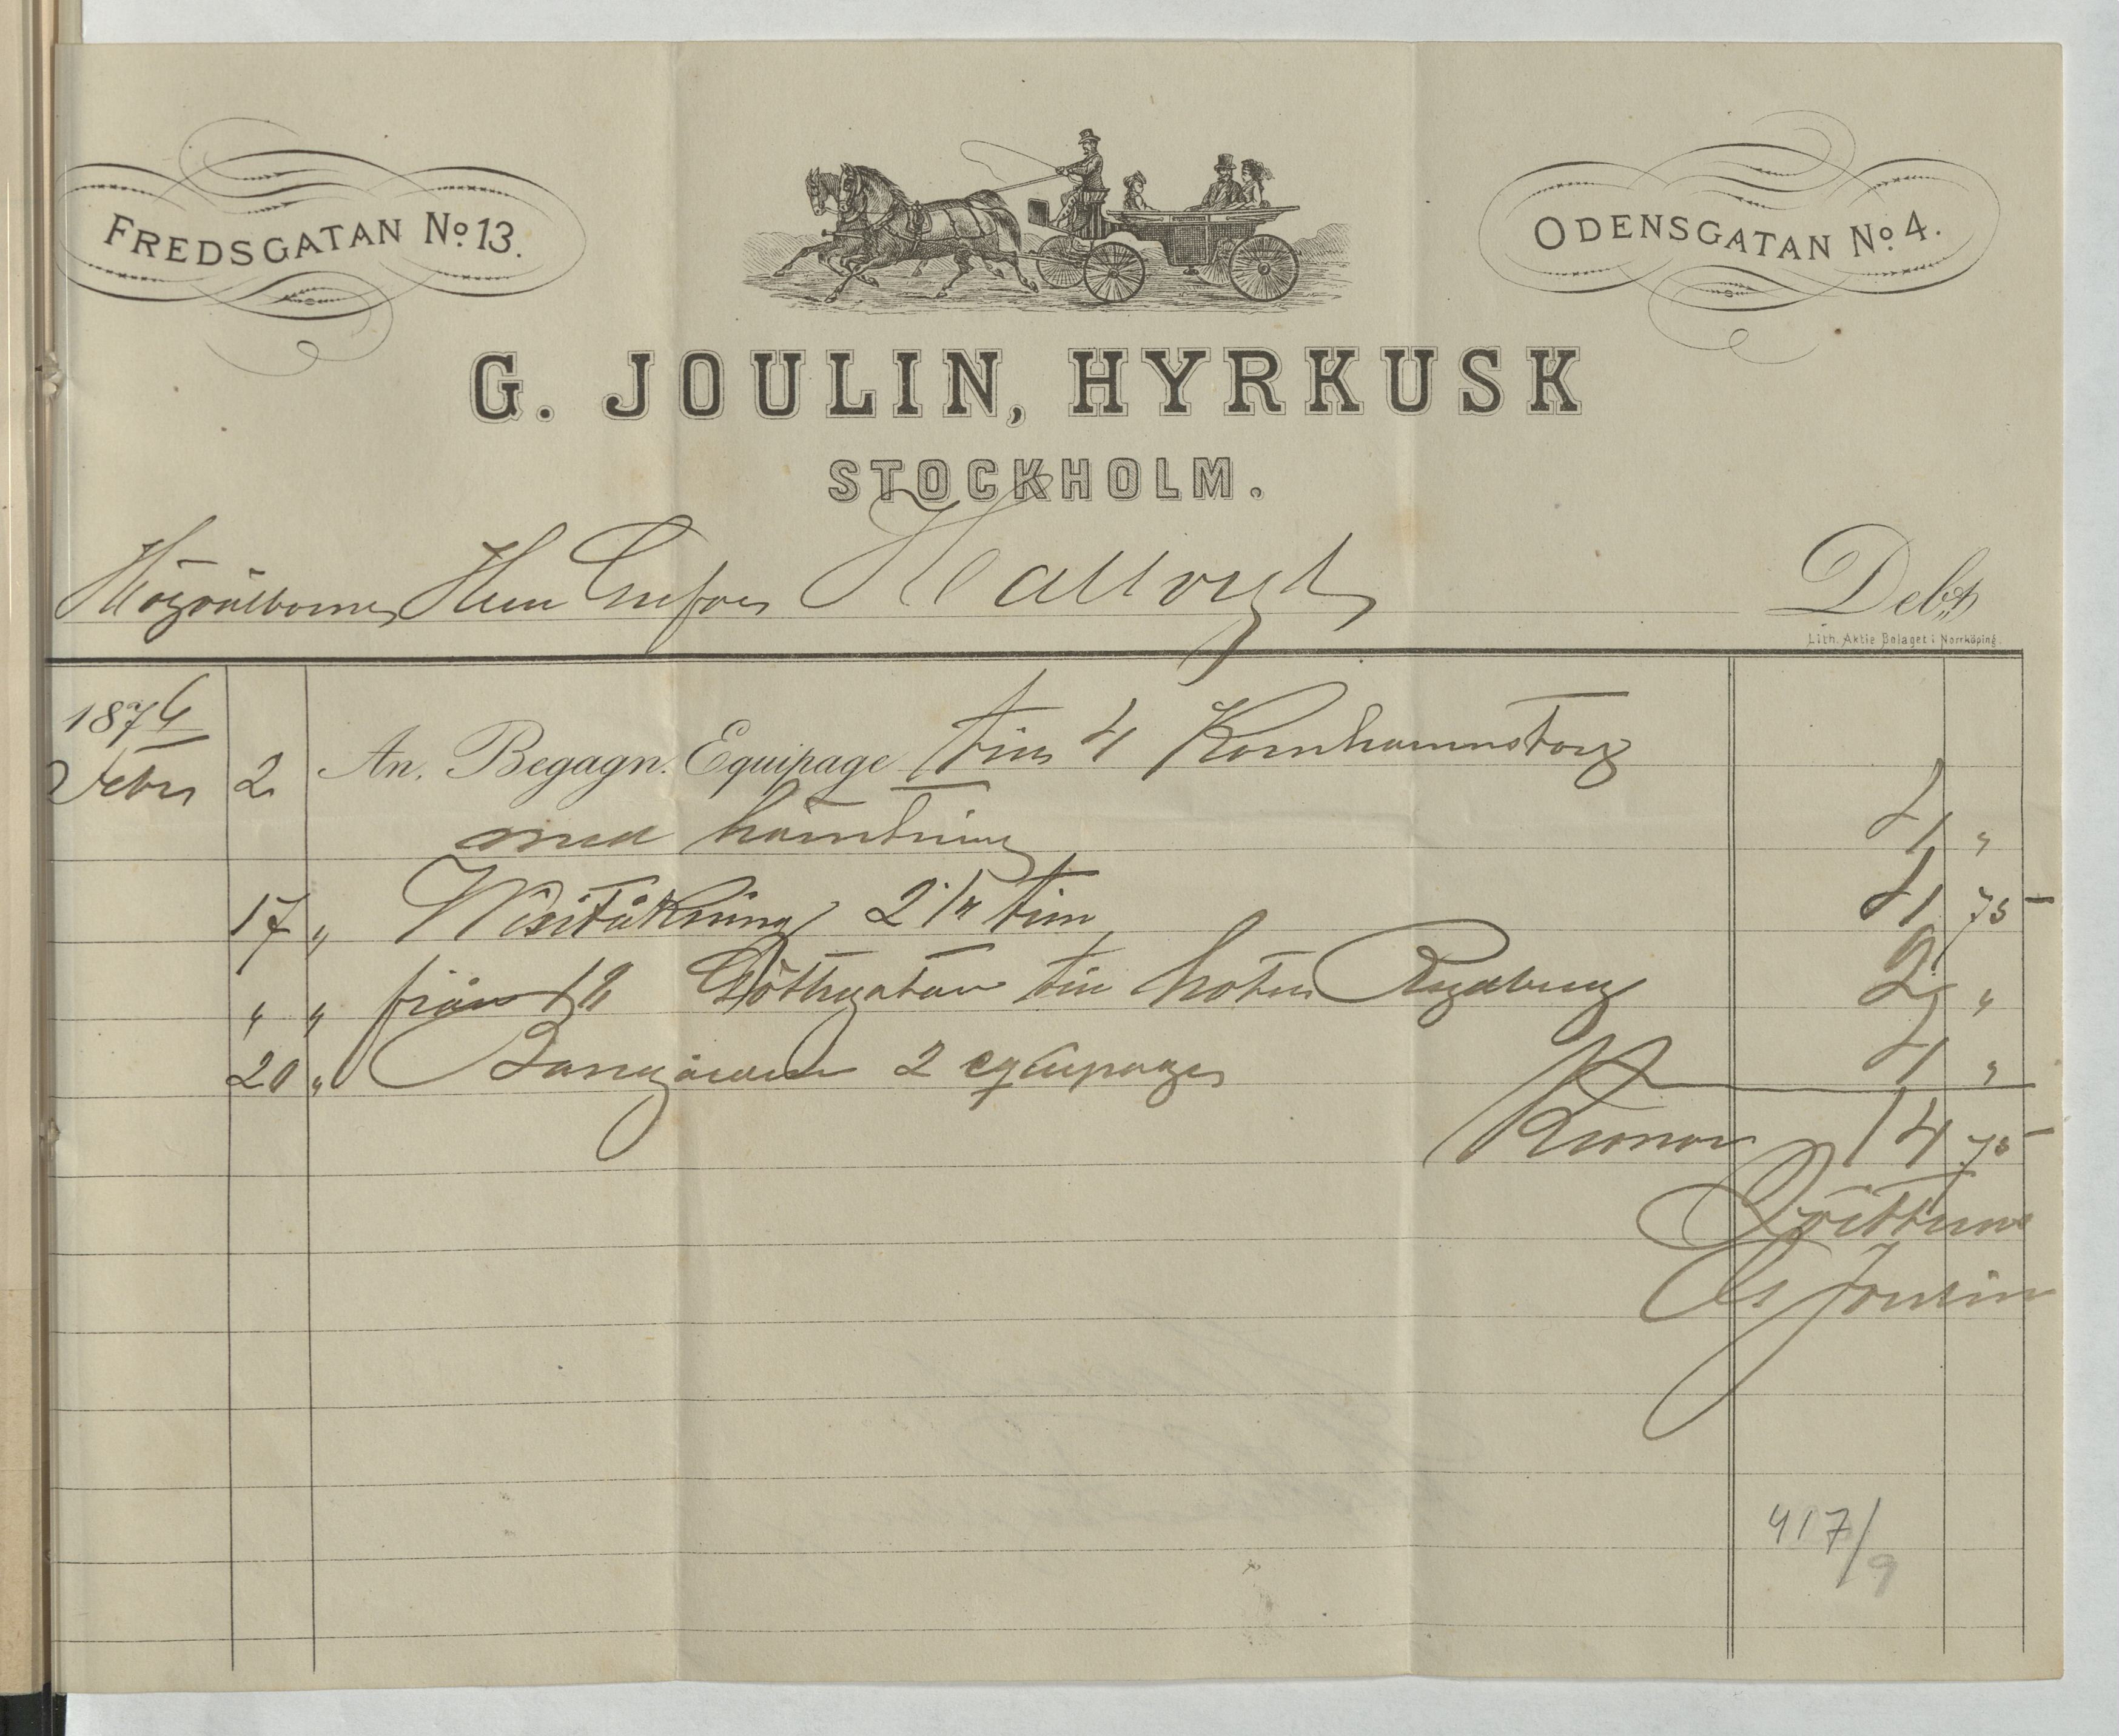 FREDSGATAN No 13.
ODENSGATAN No 4.
G. JOULIN, HYRKUSK
STOCKHOLM.
Högvälborne Herr Grefve Hallvyl Debet
Lith. Aktie Bolaget i Norrköping.
1876
Febr 2 An. Begagn. Equipage till 4 Kornhamnstorg
med hämtning 4 "
17 " Visitåkning 2 1/2 tim 4 75
" " från 18 Götthgatan till hotel Rydberg 2 "
20 " Bangården 2 equipager 4 "
Kronor 14 75
Qvitteras
G Joulin
417/9